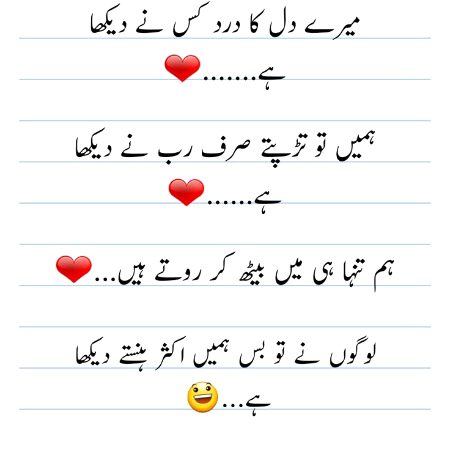 میرے دل کا درد کس نے دیکھا
ہے.......❤
ہمیں تو تڑپتے صرف رب نے دیکھا
ہے......❤
ہم تنہا ہی میں بیٹھ کر روتے ہیں...❤
لوگوں نے تو بس ہمیں اکثر ہنستے دیکھا
ہے...😃